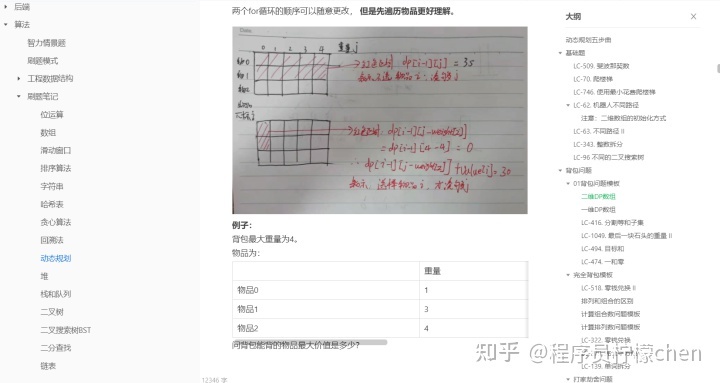 后端
算法
智力情景题
刷题模式
工程数据结构
刷题笔记
位运算
数组
滑动窗口
排序算法
字符串
哈希表
贪心算法
回溯法
动态规划
堆
栈和队列
二叉树
二叉搜索树BST
二分查找
链表
两个for循环的顺序可以随意更改，但是先遍历物品更好理解。
0 1 2 3 4 重量 j
dp[i-1][j] = 35
dp[i-1][j-weight[i]]
= dp[i-1][4-4] = 0
dp[i-1][j-weight[i]] + value[i] = 30
例子：
背包最大重量为4。
物品为：
重量
物品0 1
物品1 3
物品2 4
问背包能背的物品最大价值是多少？
12346 字
大纲
动态规划五步曲
基础题
LC-509. 斐波那契数
LC-70. 爬楼梯
LC-746. 使用最小花费爬楼梯
LC-62. 机器人不同路径
注意：二维数组的初始化方式
LC-63. 不同路径 II
LC-343. 整数拆分
LC-96 不同的二叉搜索树
背包问题
01背包问题模板
二维DP数组
一维DP数组
LC-416. 分割等和子集
LC-1049. 最后一块石头的重量 II
LC-494. 目标和
LC-474. 一和零
完全背包模板
LC-518. 零钱兑换 II
排列和组合的区别
计算组合数问题模板
计算排列数问题模板
LC-322. 零钱兑换
LC-139. 单词拆分
打家劫舍问题
知乎 @程序员柠檬chen